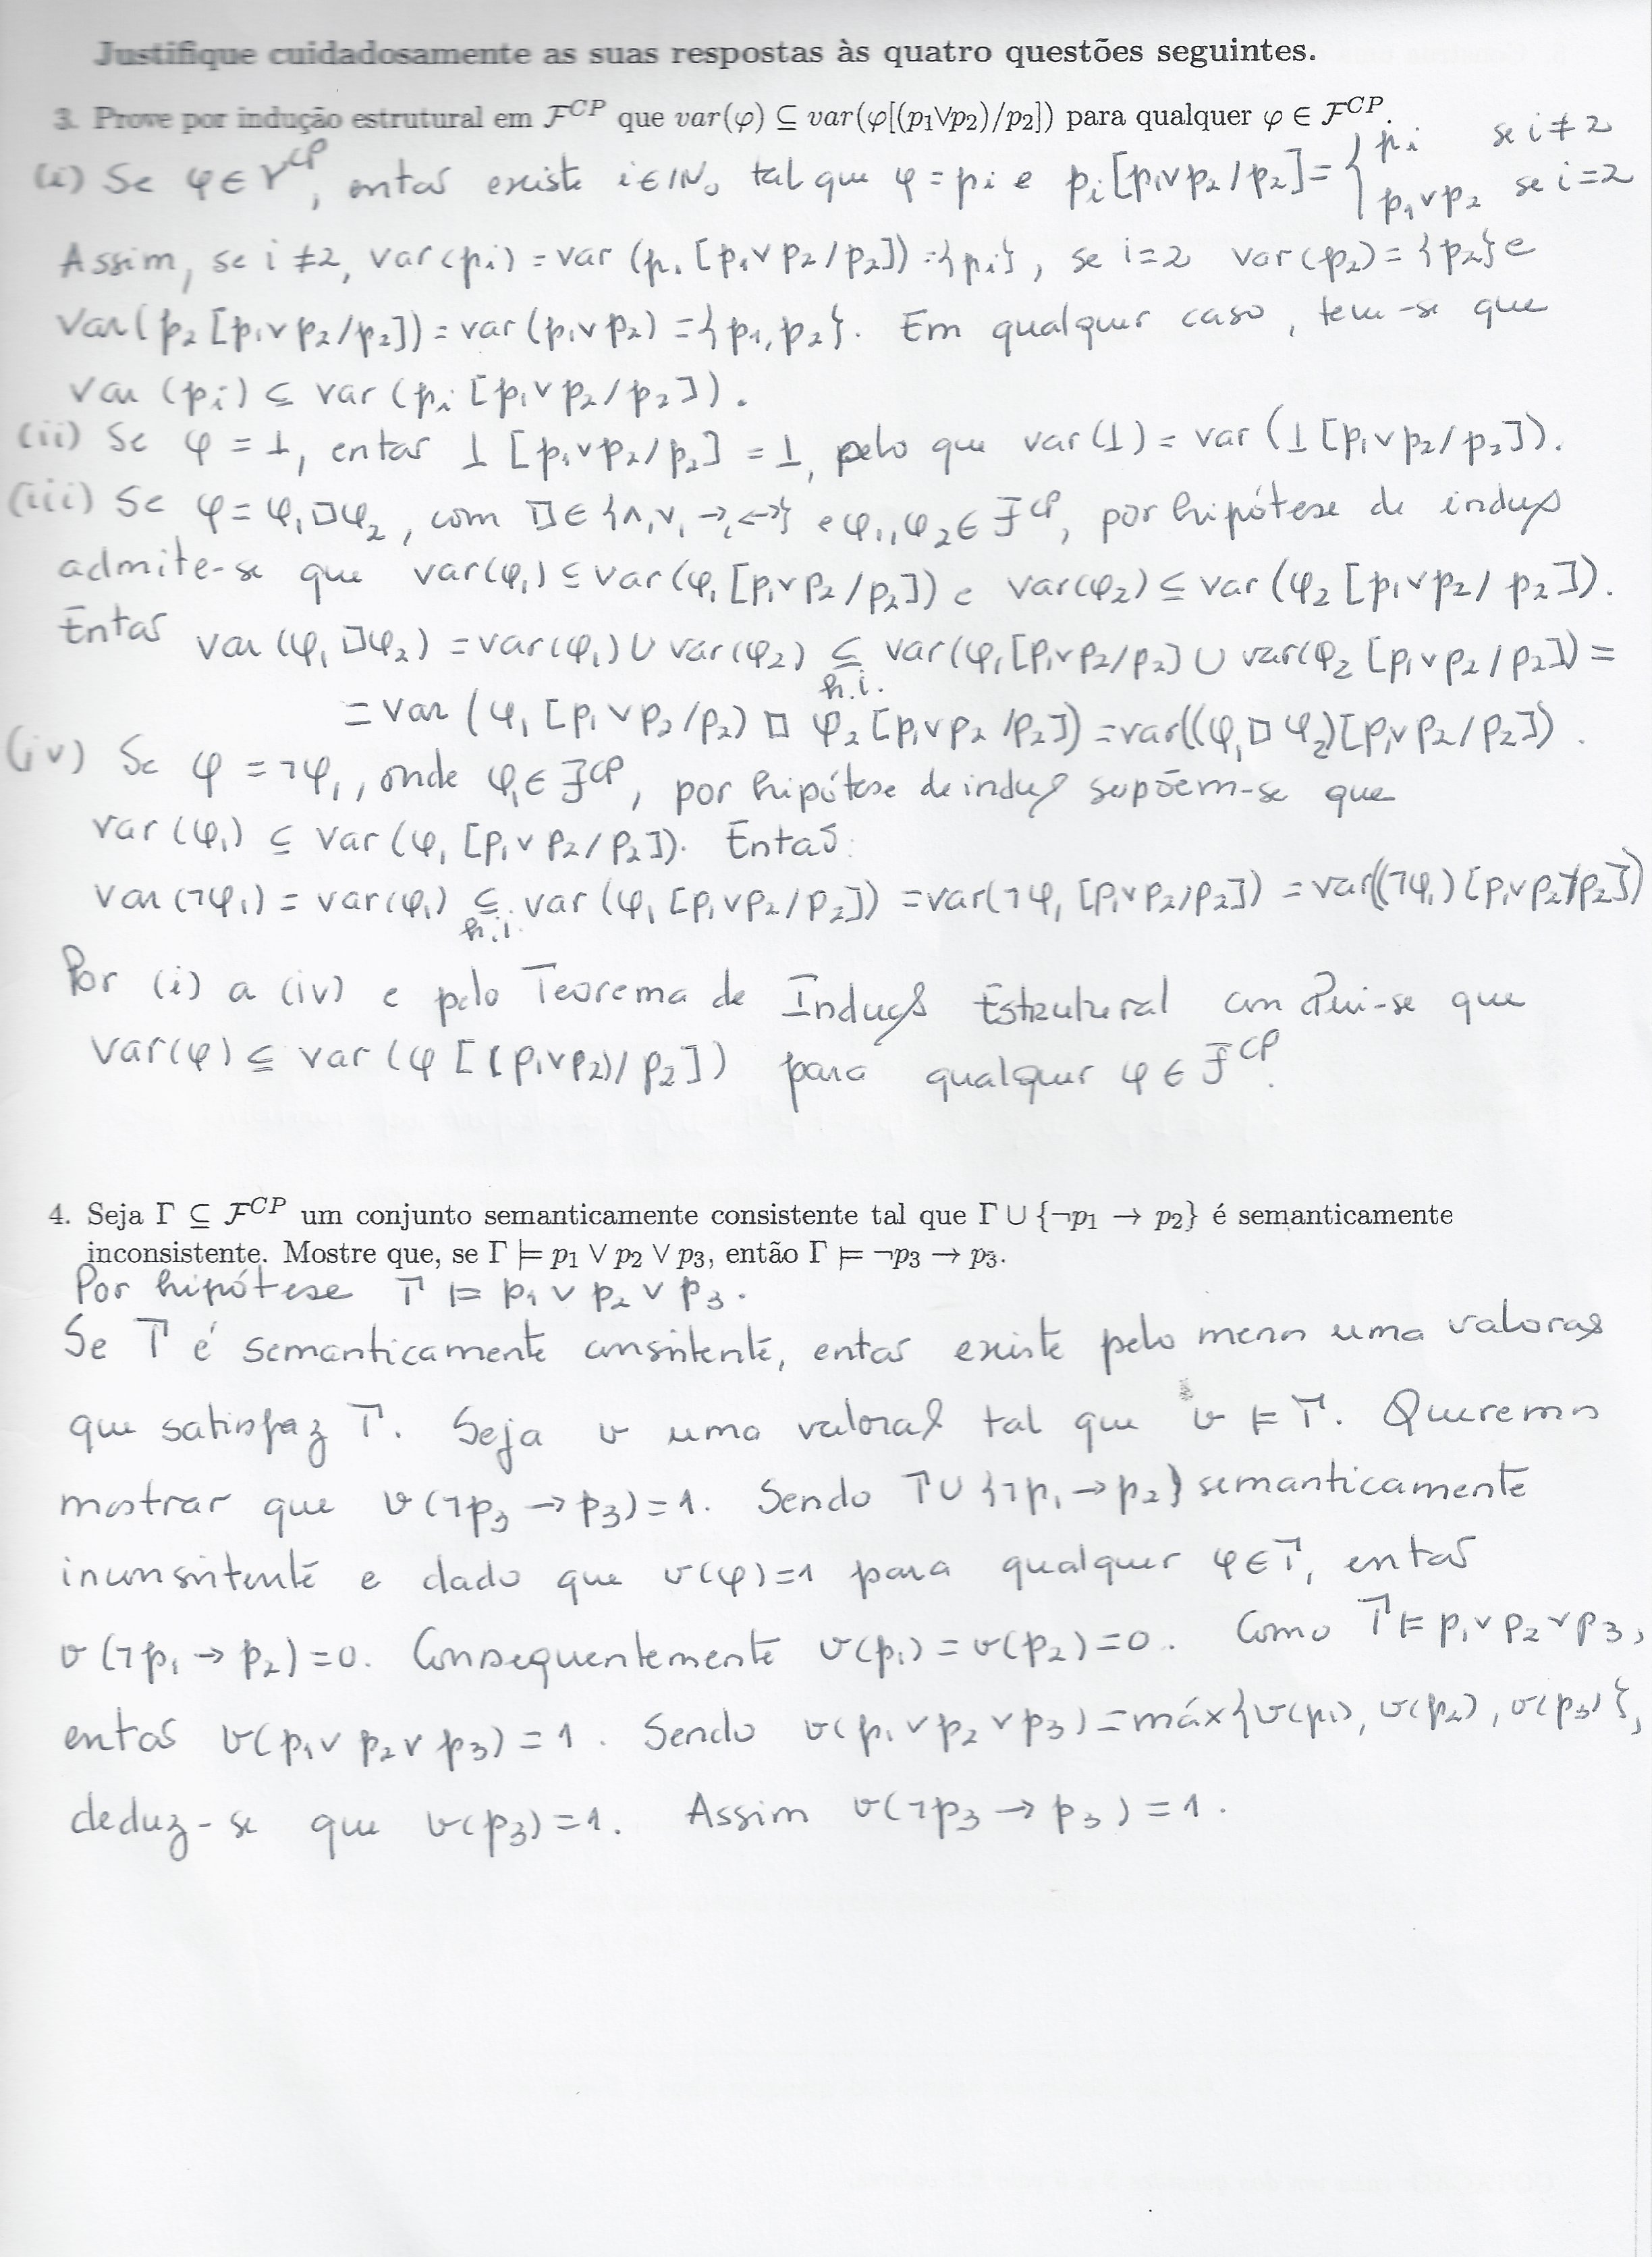 Justifique cuidadosamente as suas respostas às quatro questões seguintes.
3. Prove por indução estrutural em F^CP que var(φ) ⊆ var(φ[(p₁∨p₂)/p₂]) para qualquer φ ∈ F^CP.
(i) Se φ ∈ V^CP, então existe i ∈ IN₀ tal que φ = pi e pi[p₁∨p₂/p₂] = { pi se i ≠ 2
p₁∨p₂ se i = 2
Assim, se i ≠ 2, var(pi) = var(pi[p₁∨p₂/p₂]) = {pi}, se i=2 var(p₂) = {p₂} e
var(p₂[p₁∨p₂/p₂]) = var(p₁∨p₂) = {p₁,p₂}. Em qualquer caso, tem-se que
var(pi) ⊆ var(pi[p₁∨p₂/p₂]).
(ii) Se φ = ⊥, então ⊥[p₁∨p₂/p₂] = ⊥, pelo que var(⊥) = var(⊥[p₁∨p₂/p₂]).
(iii) Se φ = φ₁□φ₂, com □ ∈ {∧,∨,→,↔} e φ₁,φ₂ ∈ F^CP, por hipótese de indução
admite-se que var(φ₁) ⊆ var(φ₁[p₁∨p₂/p₂]) e var(φ₂) ⊆ var(φ₂[p₁∨p₂/p₂]).
Então var(φ₁□φ₂) = var(φ₁) ∪ var(φ₂) ⊆ var(φ₁[p₁∨p₂/p₂] ∪ var(φ₂[p₁∨p₂/p₂]) =
h.i.
= var(φ₁[p₁∨p₂/p₂) □ φ₂[p₁∨p₂/p₂]) = var((φ₁□φ₂)[p₁∨p₂/p₂]).
(iv) Se φ = ¬φ₁, onde φ₁ ∈ F^CP, por hipótese de indução supõem-se que
var(φ₁) ⊆ var(φ₁[p₁∨p₂/p₂]). Então:
var(¬φ₁) = var(φ₁) ⊆ var(φ₁[p₁∨p₂/p₂]) = var(¬φ₁[p₁∨p₂/p₂]) = var((¬φ₁)[p₁∨p₂/p₂])
h.i.
Por (i) a (iv) e pelo Teorema de Indução Estrutural conclui-se que
var(φ) ⊆ var(φ[(p₁∨p₂)/p₂]) para qualquer φ ∈ F^CP.
4. Seja Γ ⊆ F^CP um conjunto semanticamente consistente tal que Γ ∪ {¬p₁ → p₂} é semanticamente
inconsistente. Mostre que, se Γ ⊨ p₁ ∨ p₂ ∨ p₃, então Γ ⊨ ¬p₃ → p₃.
Por hipótese Γ ⊨ p₁ ∨ p₂ ∨ p₃.
Se Γ é semanticamente consistente, então existe pelo menos uma valoração
que satisfaz Γ. Seja v uma valoração tal que v ⊨ Γ. Queremos
mostrar que v(¬p₃ → p₃) = 1. Sendo Γ ∪ {¬p₁ → p₂} semanticamente
inconsistente e dado que v(φ)=1 para qualquer φ ∈ Γ, então
v(¬p₁ → p₂) = 0. Consequentemente v(p₁) = v(p₂) = 0. Como Γ ⊨ p₁∨p₂∨p₃,
então v(p₁∨p₂∨p₃) = 1. Sendo v(p₁∨p₂∨p₃) = máx{v(p₁), v(p₂), v(p₃)},
deduz-se que v(p₃) = 1. Assim v(¬p₃ → p₃) = 1.